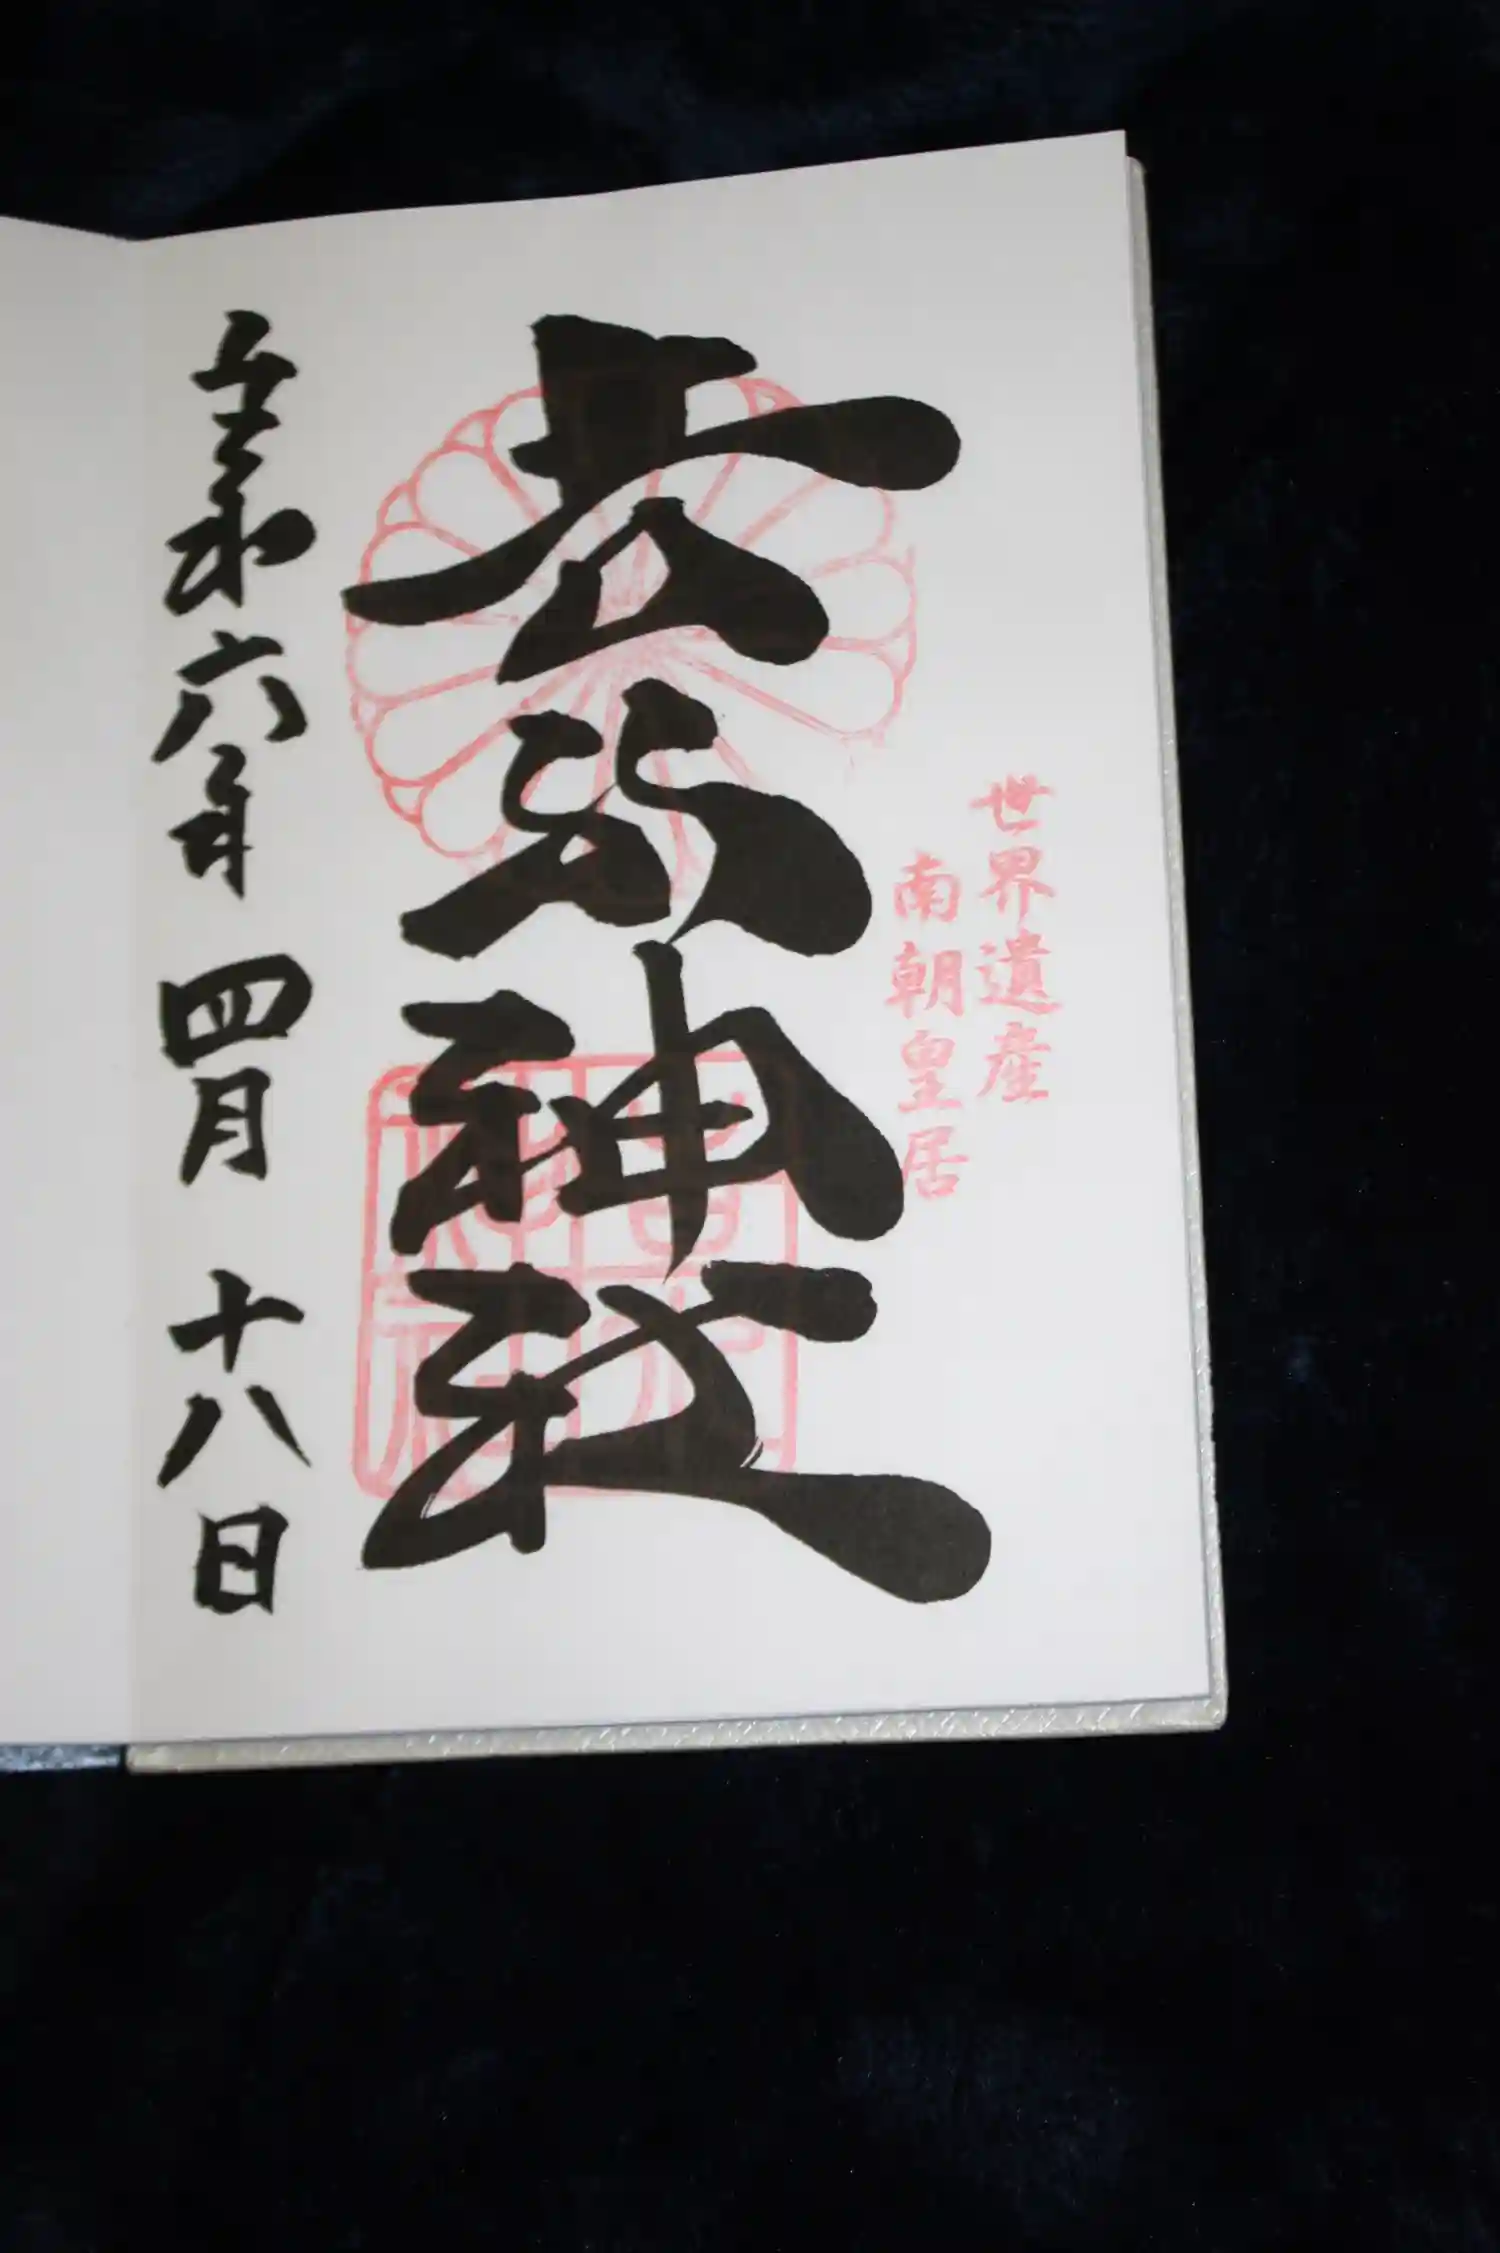 世界遺産
南朝皇居
吉水神社
令和六年四月十八日
吉水
神社